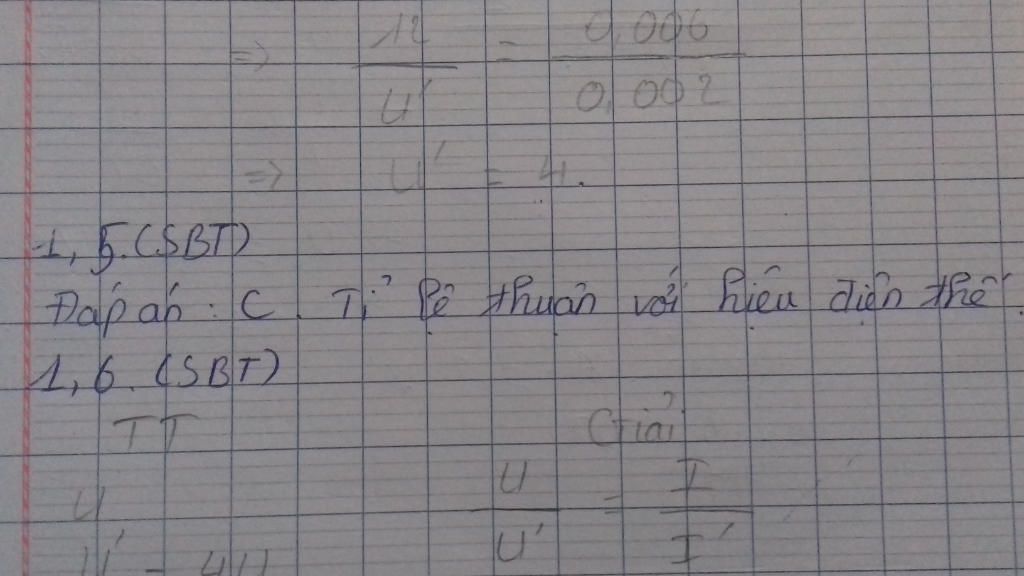 => 12/U' = 0,006/0,002
=> U' = 4.
1,5.(SBT)
Đáp án: C. Tỉ lệ thuận với hiệu điện thế.
1,6. (SBT)
TT Giải
U U/U' = I/I'
U' = 4U